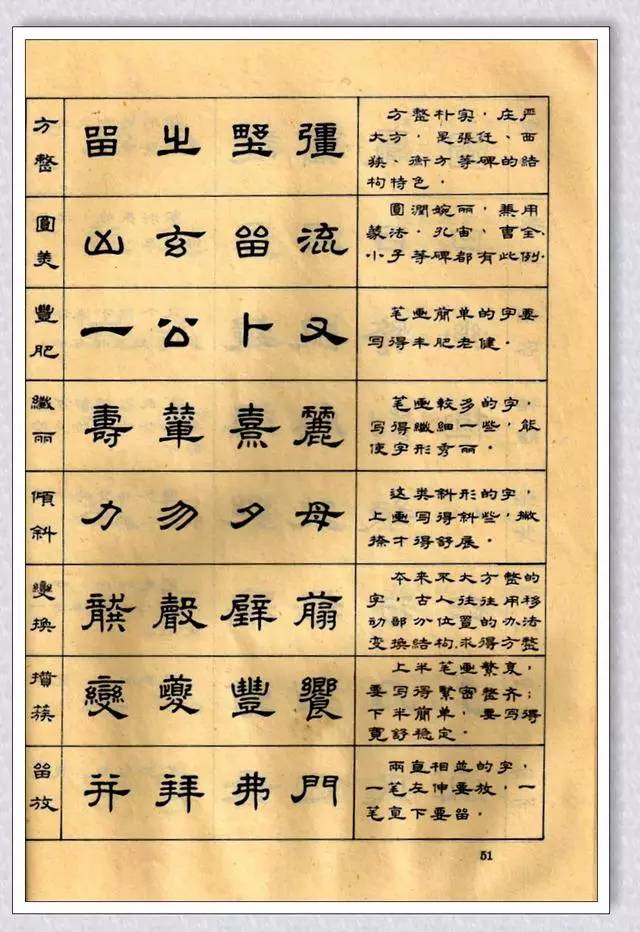 方整
留 之 彊
方整朴实，庄严
大方，是張迁、西
狭、衡方等碑的结
构特色。
圓美
凶 玄 留 流
圓潤婉丽，兼用
篆法，孔宙、曹全、
小子等碑都有此例.
豐肥
一 公 卜 又
笔画簡单的字要
写得丰肥老健。
纖丽
壽 葷 熹 麗
笔画較多的字，
写得纖細一些，能
使字形秀丽。
傾斜
力 勿 夕 母
这类斜形的字，
上画写得斜些，撇
捺才得舒展。
變换
龔 聲 翦
本来不大方整的
字，古人往往用移
动部分位置的办法
变换结构.求得方整
攢蔟
變 夔 豐 饗
上半笔画繁复，
要写得繁密整齐；
下半簡单，要写得
寬舒稳定。
留放
并 拜 弗 門
兩直相並的字，
一笔左伸要放，一
笔直下要留。
51